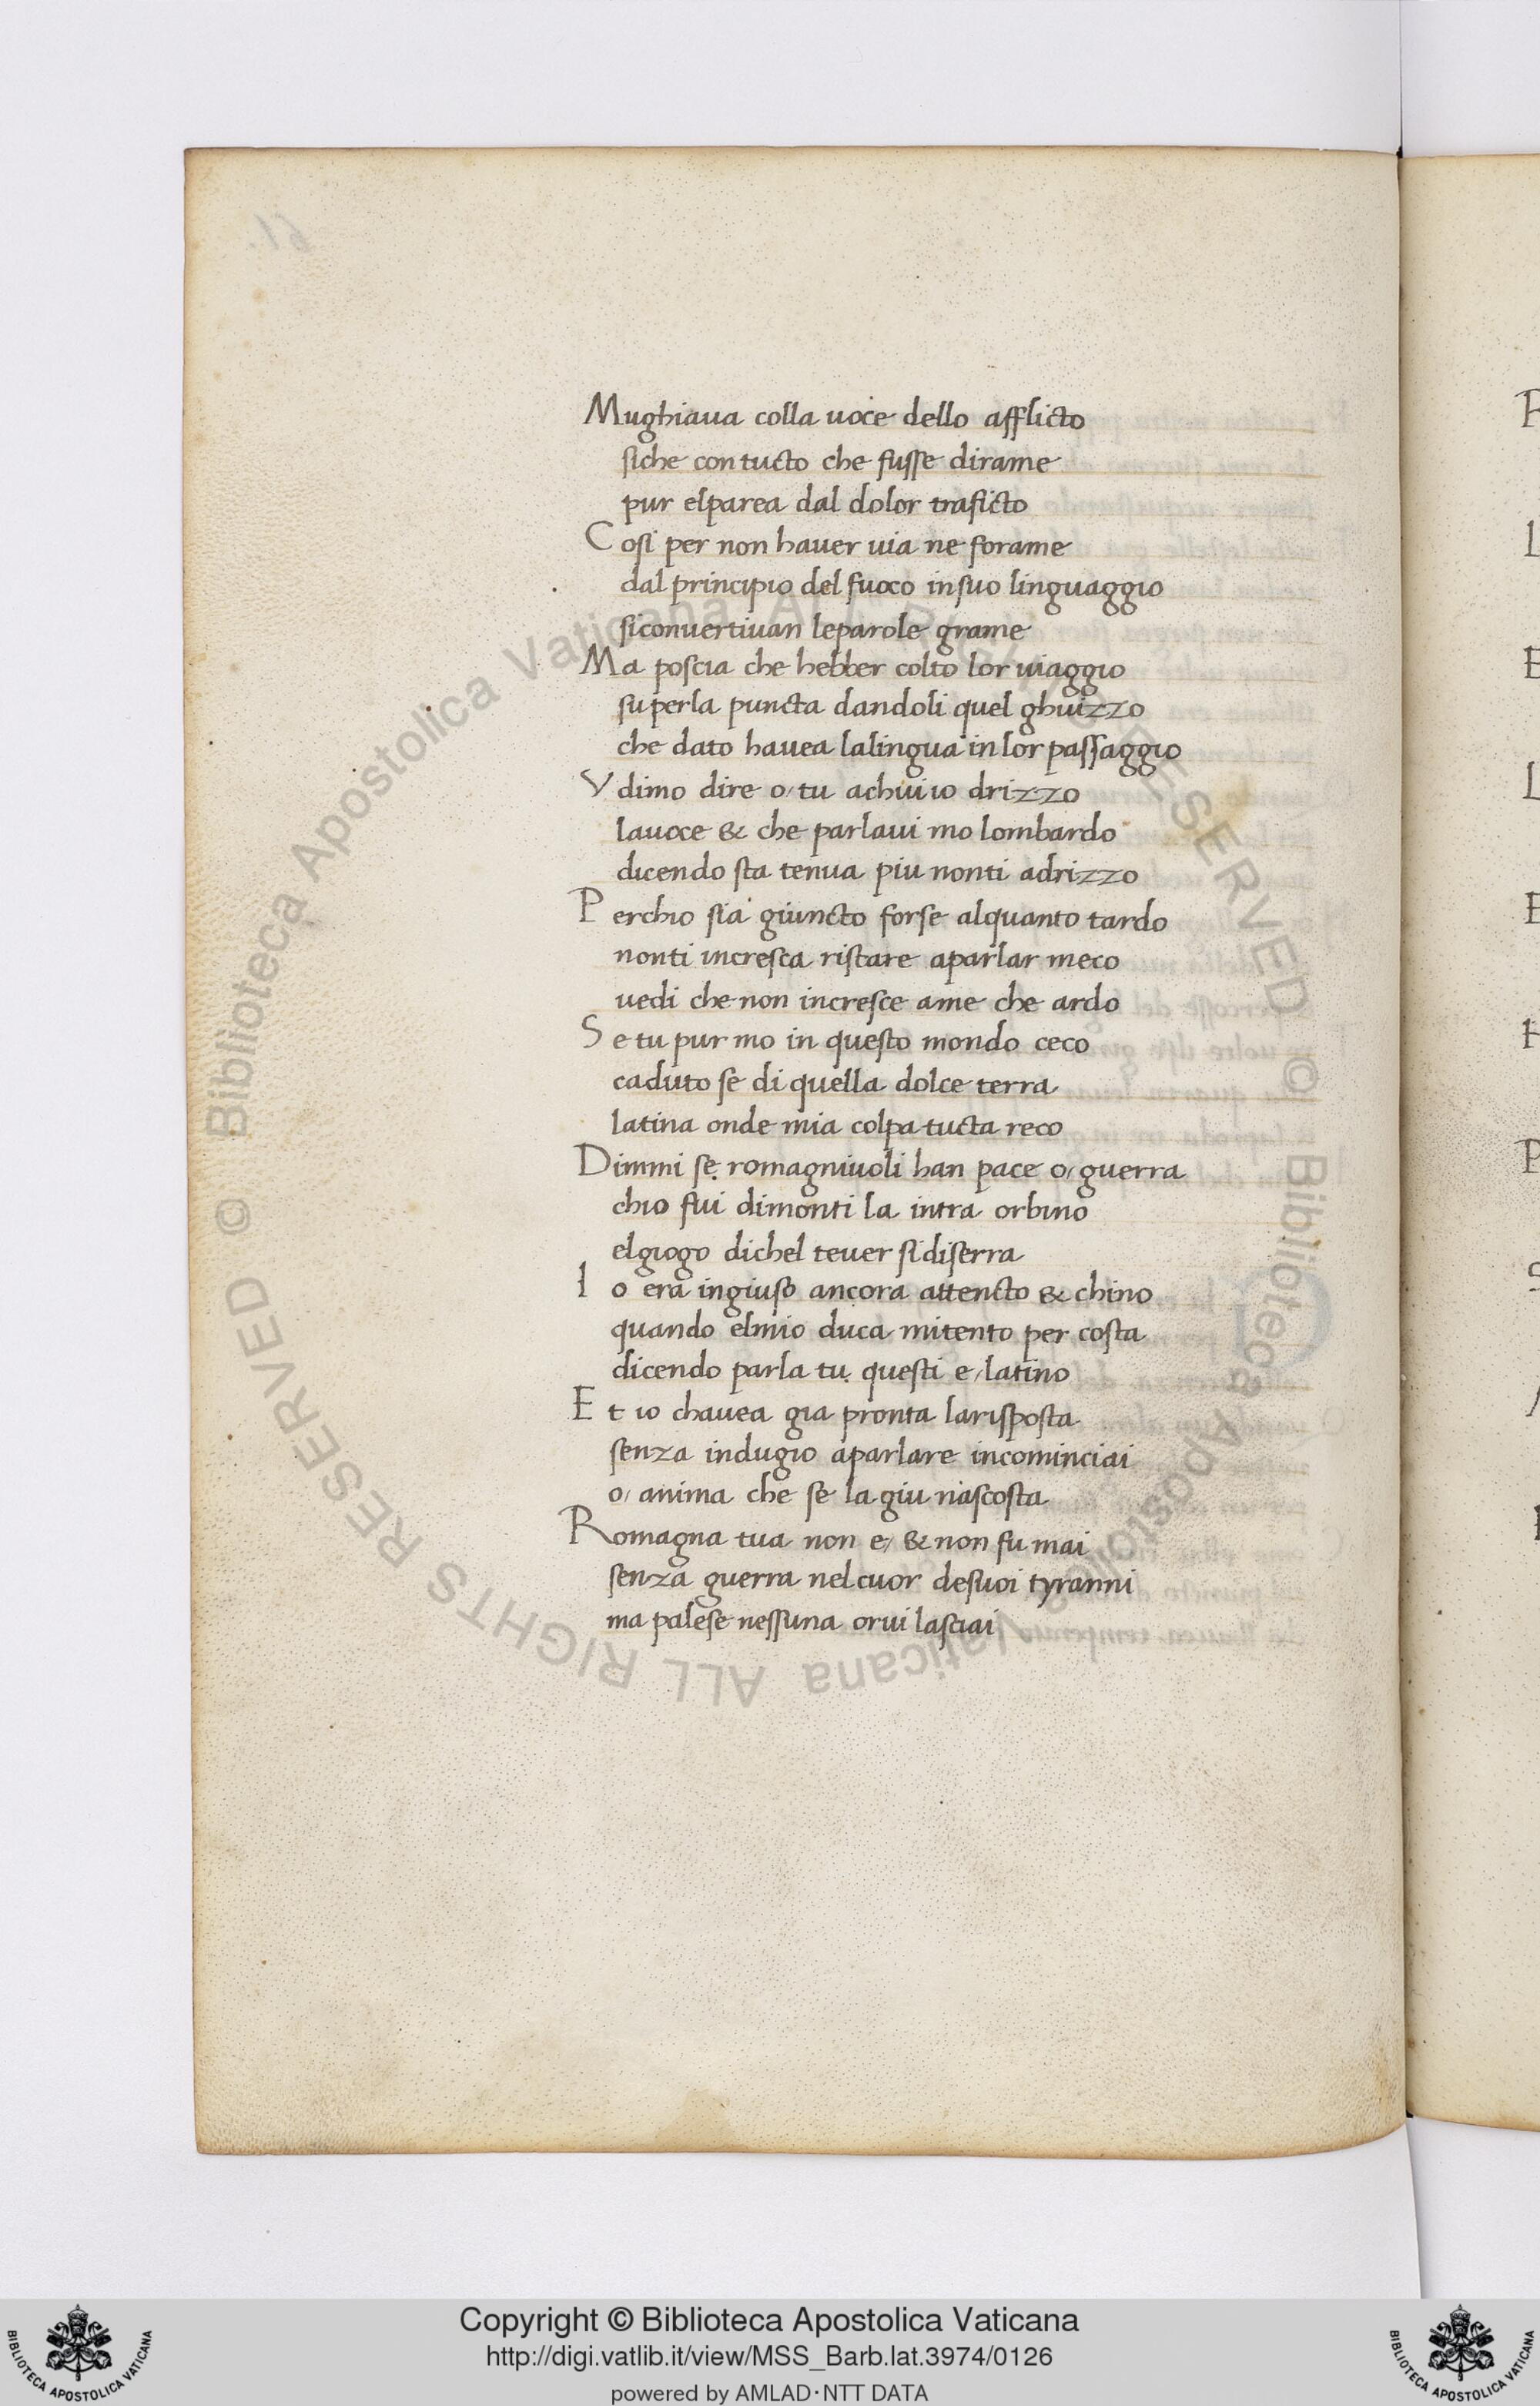 Mughiaua colla uoce dello afflicto
siche con tucto che fusse dirame
pur elparea dal dolor traficto
Cosi per non hauer uia ne forame
dal principio del fuoco insuo linguaggio
siconuertiuan leparole grame
Ma poscia che hebber colto lor uiaggio
su perla puncta dandoli quel ghuizzo
che dato hauea lalingua in lor passaggio
Vdimo dire o/ tu achui io drizzo
lauoce & che parlaui mo lombardo
dicendo sta tenua piu nonti adrizzo
Perchio sia giuncto forse alquanto tardo
nonti incresca ristare aparlar meco
uedi che non incresce ame che ardo
Se tu pur mo in questo mondo ceco
caduto se di quella dolce terra
latina onde mia colpa tucta reco
Dimmi se romagniuoli han pace o/ guerra
chio fui dimonti la intra orbino
elgiogo dichel teuer sidiserra
Io era ingiuso ancora attencto & chino
quando elmio duca mitento per costa
dicendo parla tu. questi e/ latino
Et io chauea gia pronta larisposta
senza indugio aparlare incominciai
o/ anima che se la giu nascosta
Romagna tua non e/ & non fu mai
senza guerra nel cuor desuoi tyranni
ma palese nessuna orui lasciai
© Biblioteca Apostolica Vaticana ALL RIGHTS RESERVED © Biblioteca Apostolica Vaticana ALL RIGHTS RESERVED
Copyright © Biblioteca Apostolica Vaticana
http://digi.vatlib.it/view/MSS_Barb.lat.3974/0126
powered by AMLAD·NTT DATA
BIBLIOTECA APOSTOLICA VATICANA
BIBLIOTECA APOSTOLICA VATICANA